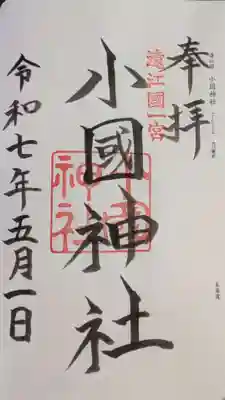 奉拝
遠江國一宮
小國神社
小國神社
令和七年五月一日